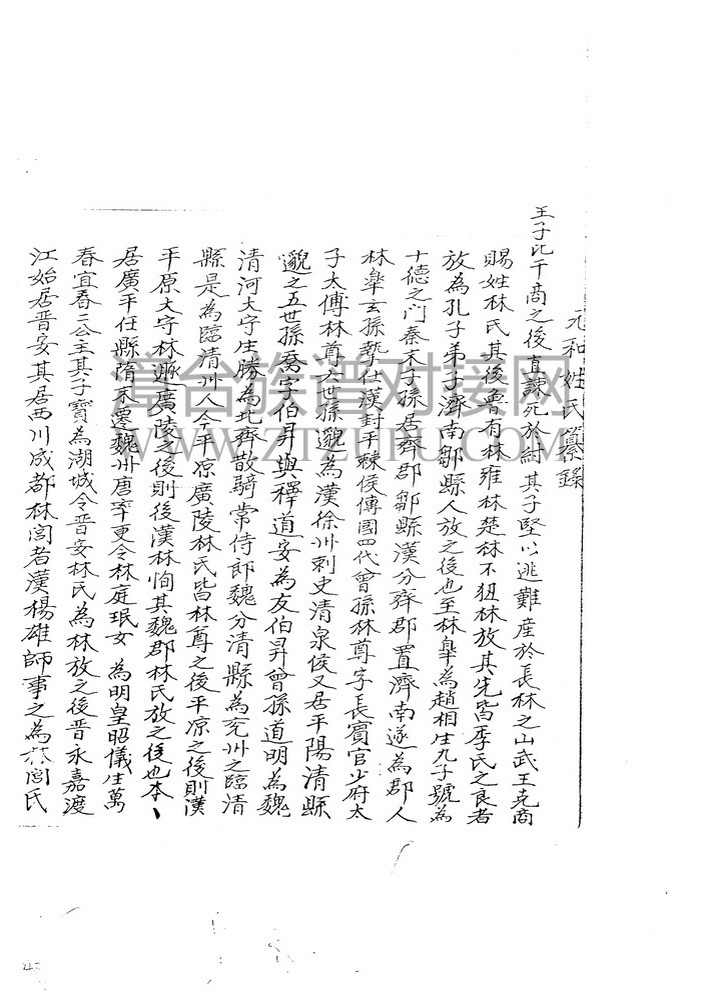 元和姓氏纂錄
王子比干商之後直諫死於紂其子堅以逃難產於長林之山武王克商
賜姓林氏其後魯有林雍林楚林不狃林放其先皆季氏之良者
放為孔子弟子濟南鄒縣人放之後也至林皐為趙相生九子號為
十德之門秦末子孫居齊郡鄒縣漢分齊郡置濟南遂為郡人
林皐玄孫摯仕漢封平棘侯傳國四代曾孫林尊字長賓官少府太
子太傅林尊六世孫邈為漢徐州刺史清泉侯又居平陽清縣
邈之五世孫喬字伯昇與釋道安為友伯昇曾孫道明為魏
清河大守生勝為北齊散騎常侍郎魏分清縣為兖州之臨清
縣是為臨清州人今平凉廣陵林氏皆林尊之後平凉之後則漢
平原大守林遜廣陵之後則後漢林恂其魏郡林氏放之後也本
居廣平任縣隋末遷魏州唐率更令林庭珉女為明皇昭儀生萬
春宜春二公主其子寶為湖城令晋安林氏為林放之後晋永嘉渡
江始居晋安其居西川成都林閭者漢楊雄師事之為林閭氏
澶台族谱对接网
WWW.ZTZUPU.COM